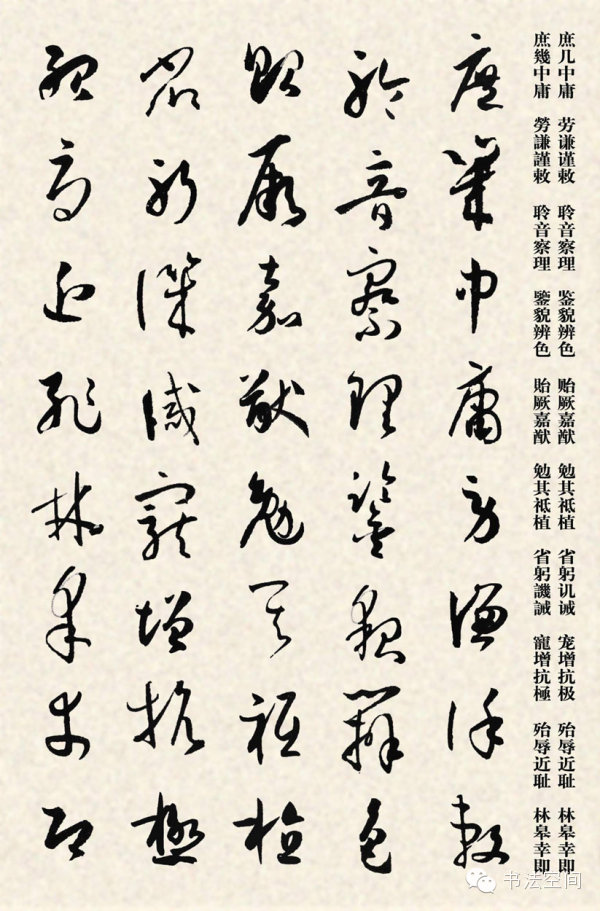 庶几中庸 劳谦谨敕 聆音察理 鉴貌辨色 贻厥嘉猷 勉其祗植 省躬讥诫 宠增抗极 殆辱近耻 林皋幸即
庶幾中庸 勞謙謹敕 聆音察理 鑒貌辨色 貽厥嘉猷 勉其祗植 省躬譏誡 寵增抗極 殆辱近耻 林皋幸即
庶幾中庸勞謙謹敕
聆音察理鑒貌辨色
貽厥嘉猷勉其祗植
省躬譏誡寵增抗極
殆辱近耻林皋幸即
书法空间